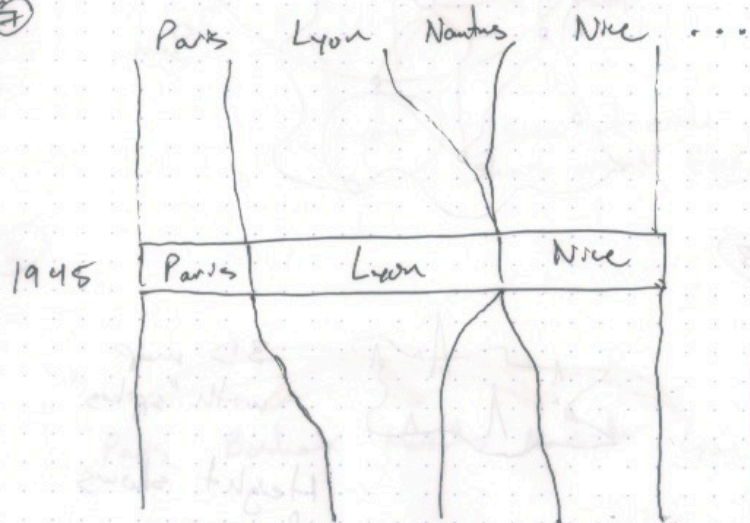 7
Paris Lyon Nantes Nice ....
1945 Paris Lyon Nice